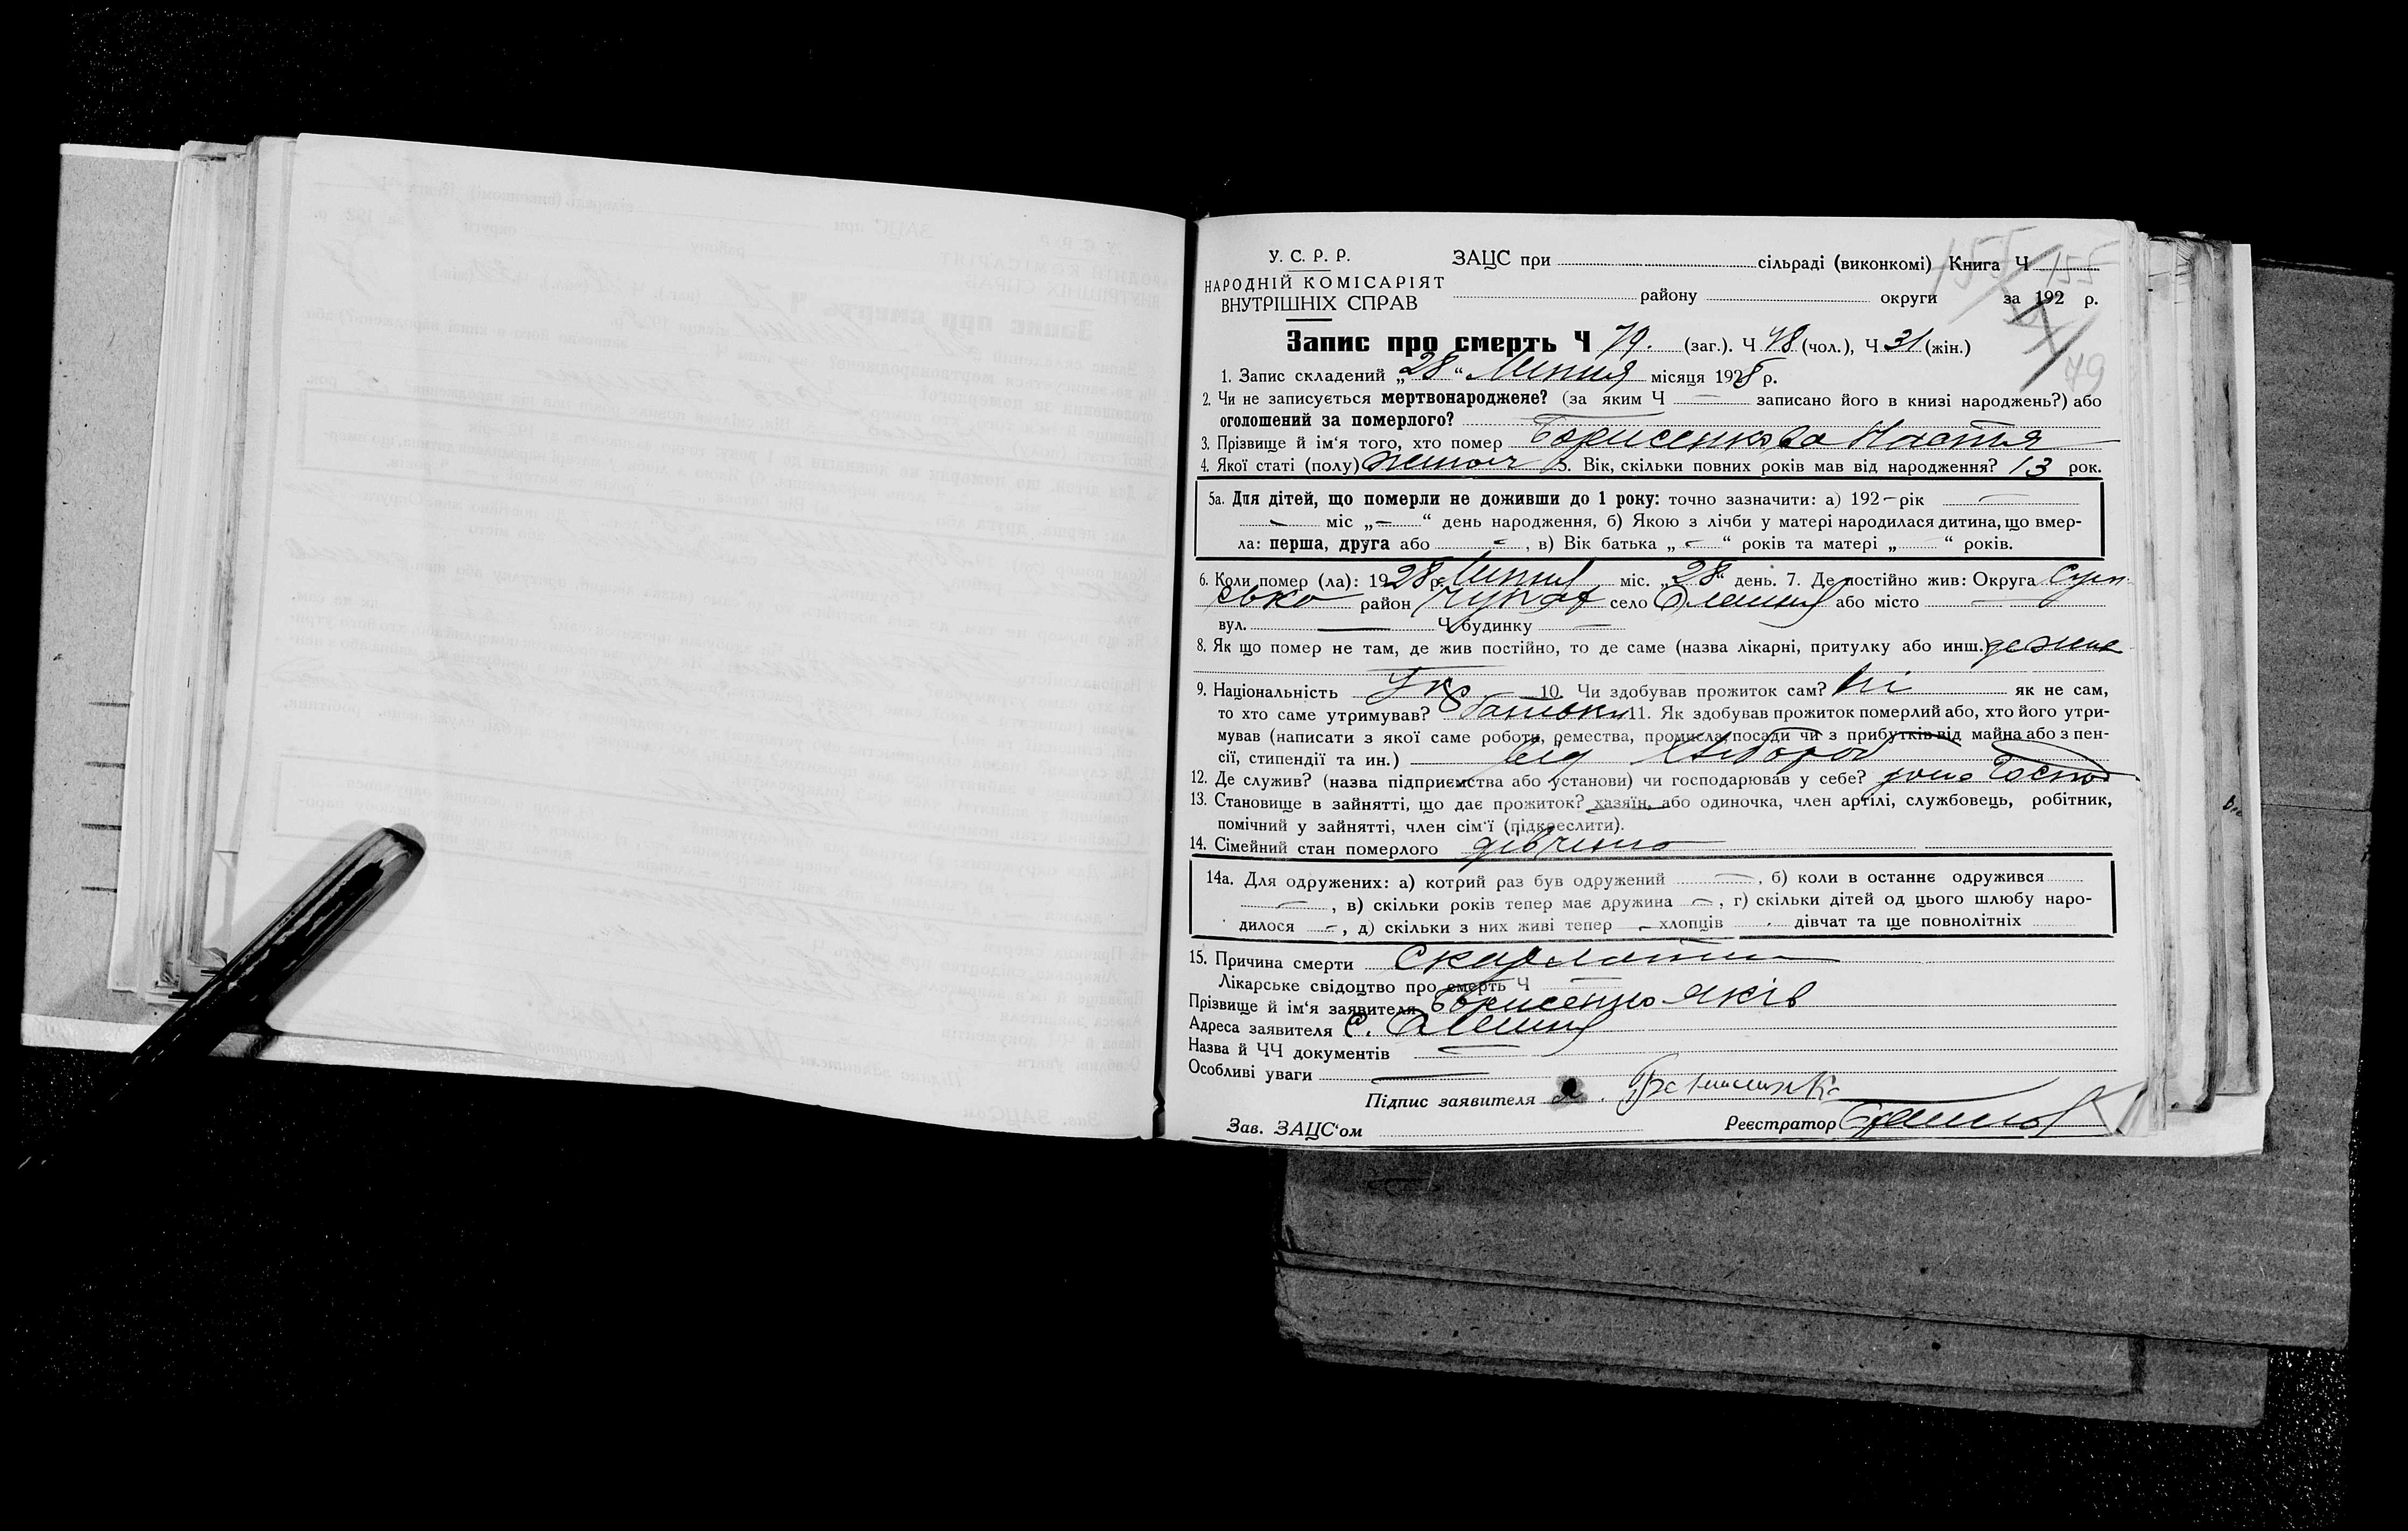 У. С. Р. Р.
НАРОДНІЙ КОМІСАРІЯТ
ВНУТРІШНІХ СПРАВ
ЗАЦС при сільраді (виконкомі) Книга Ч 155
району округи за 192 р.
79
Запис про смерть Ч 79. (заг.). Ч 48 (чол.), Ч 31 (жін.)
1. Запис складений „28“ Липня місяця 1928 р.
2. Чи не записується мертвонароджене? (за яким Ч — записано його в книзі народжень?) або
оголошений за померлого?
3. Прізвище й ім'я того, хто помер Борисенкова Настя
4. Якої статі (полу) 5. Вік, скільки повних років мав від народження? 13 рок.
5а. Для дітей, що померли не доживши до 1 року: точно зазначити: а) 192—рік —
— міс „—“ день народження, б) Якою з лічби у матері народилася дитина, що вмер-
ла: перша, друга або —, в) Вік батька „—“ років та матері „ “ років.
6. Коли помер (ла): 1928 р. Липня міс. „28“ день. 7. Де постійно жив: Округа Сум-
сько район село або місто —
вул. — Ч будинку —
8. Як що помер не там, де жив постійно, то де саме (назва лікарні, притулку або инш.)
9. Національність Укр 10. Чи здобував прожиток сам? Ні як не сам,
то хто саме утримував? батьки 11. Як здобував прожиток померлий або, хто його утри-
мував (написати з якої саме роботи, ремества, промисла, посади чи з прибутків від майна або з пен-
сії, стипендії та ин.) від хлібороб
12. Де служив? (назва підприємства або установи) чи господарював у себе?
13. Становище в зайнятті, що дає прожиток? хазяїн, або одиночка, член артілі, службовець, робітник,
помічний у зайнятті, член сім'ї (підкреслити).
14. Сімейний стан померлого дівчина
14а. Для одружених: а) котрий раз був одружений —, б) коли в останнє одружився
—, в) скільки років тепер має дружина —, г) скільки дітей од цього шлюбу наро-
дилося —, д) скільки з них живі тепер — хлопців — дівчат та ще повнолітніх
15. Причина смерти Скарлатина
Лікарське свідоцтво про смерть Ч —
Прізвище й ім'я заявителя Борисенко Яків
Адреса заявителя С.
Назва й ЧЧ документів —
Особливі уваги —
Підпис заявителя
Зав. ЗАЦС'ом Реєстратор